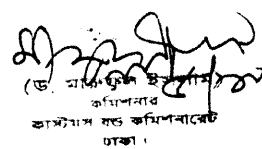 (ড. মারুফুল ইসলাম)
কমিশনার
কাস্টমস বন্ড কমিশনারেট
ঢাকা।